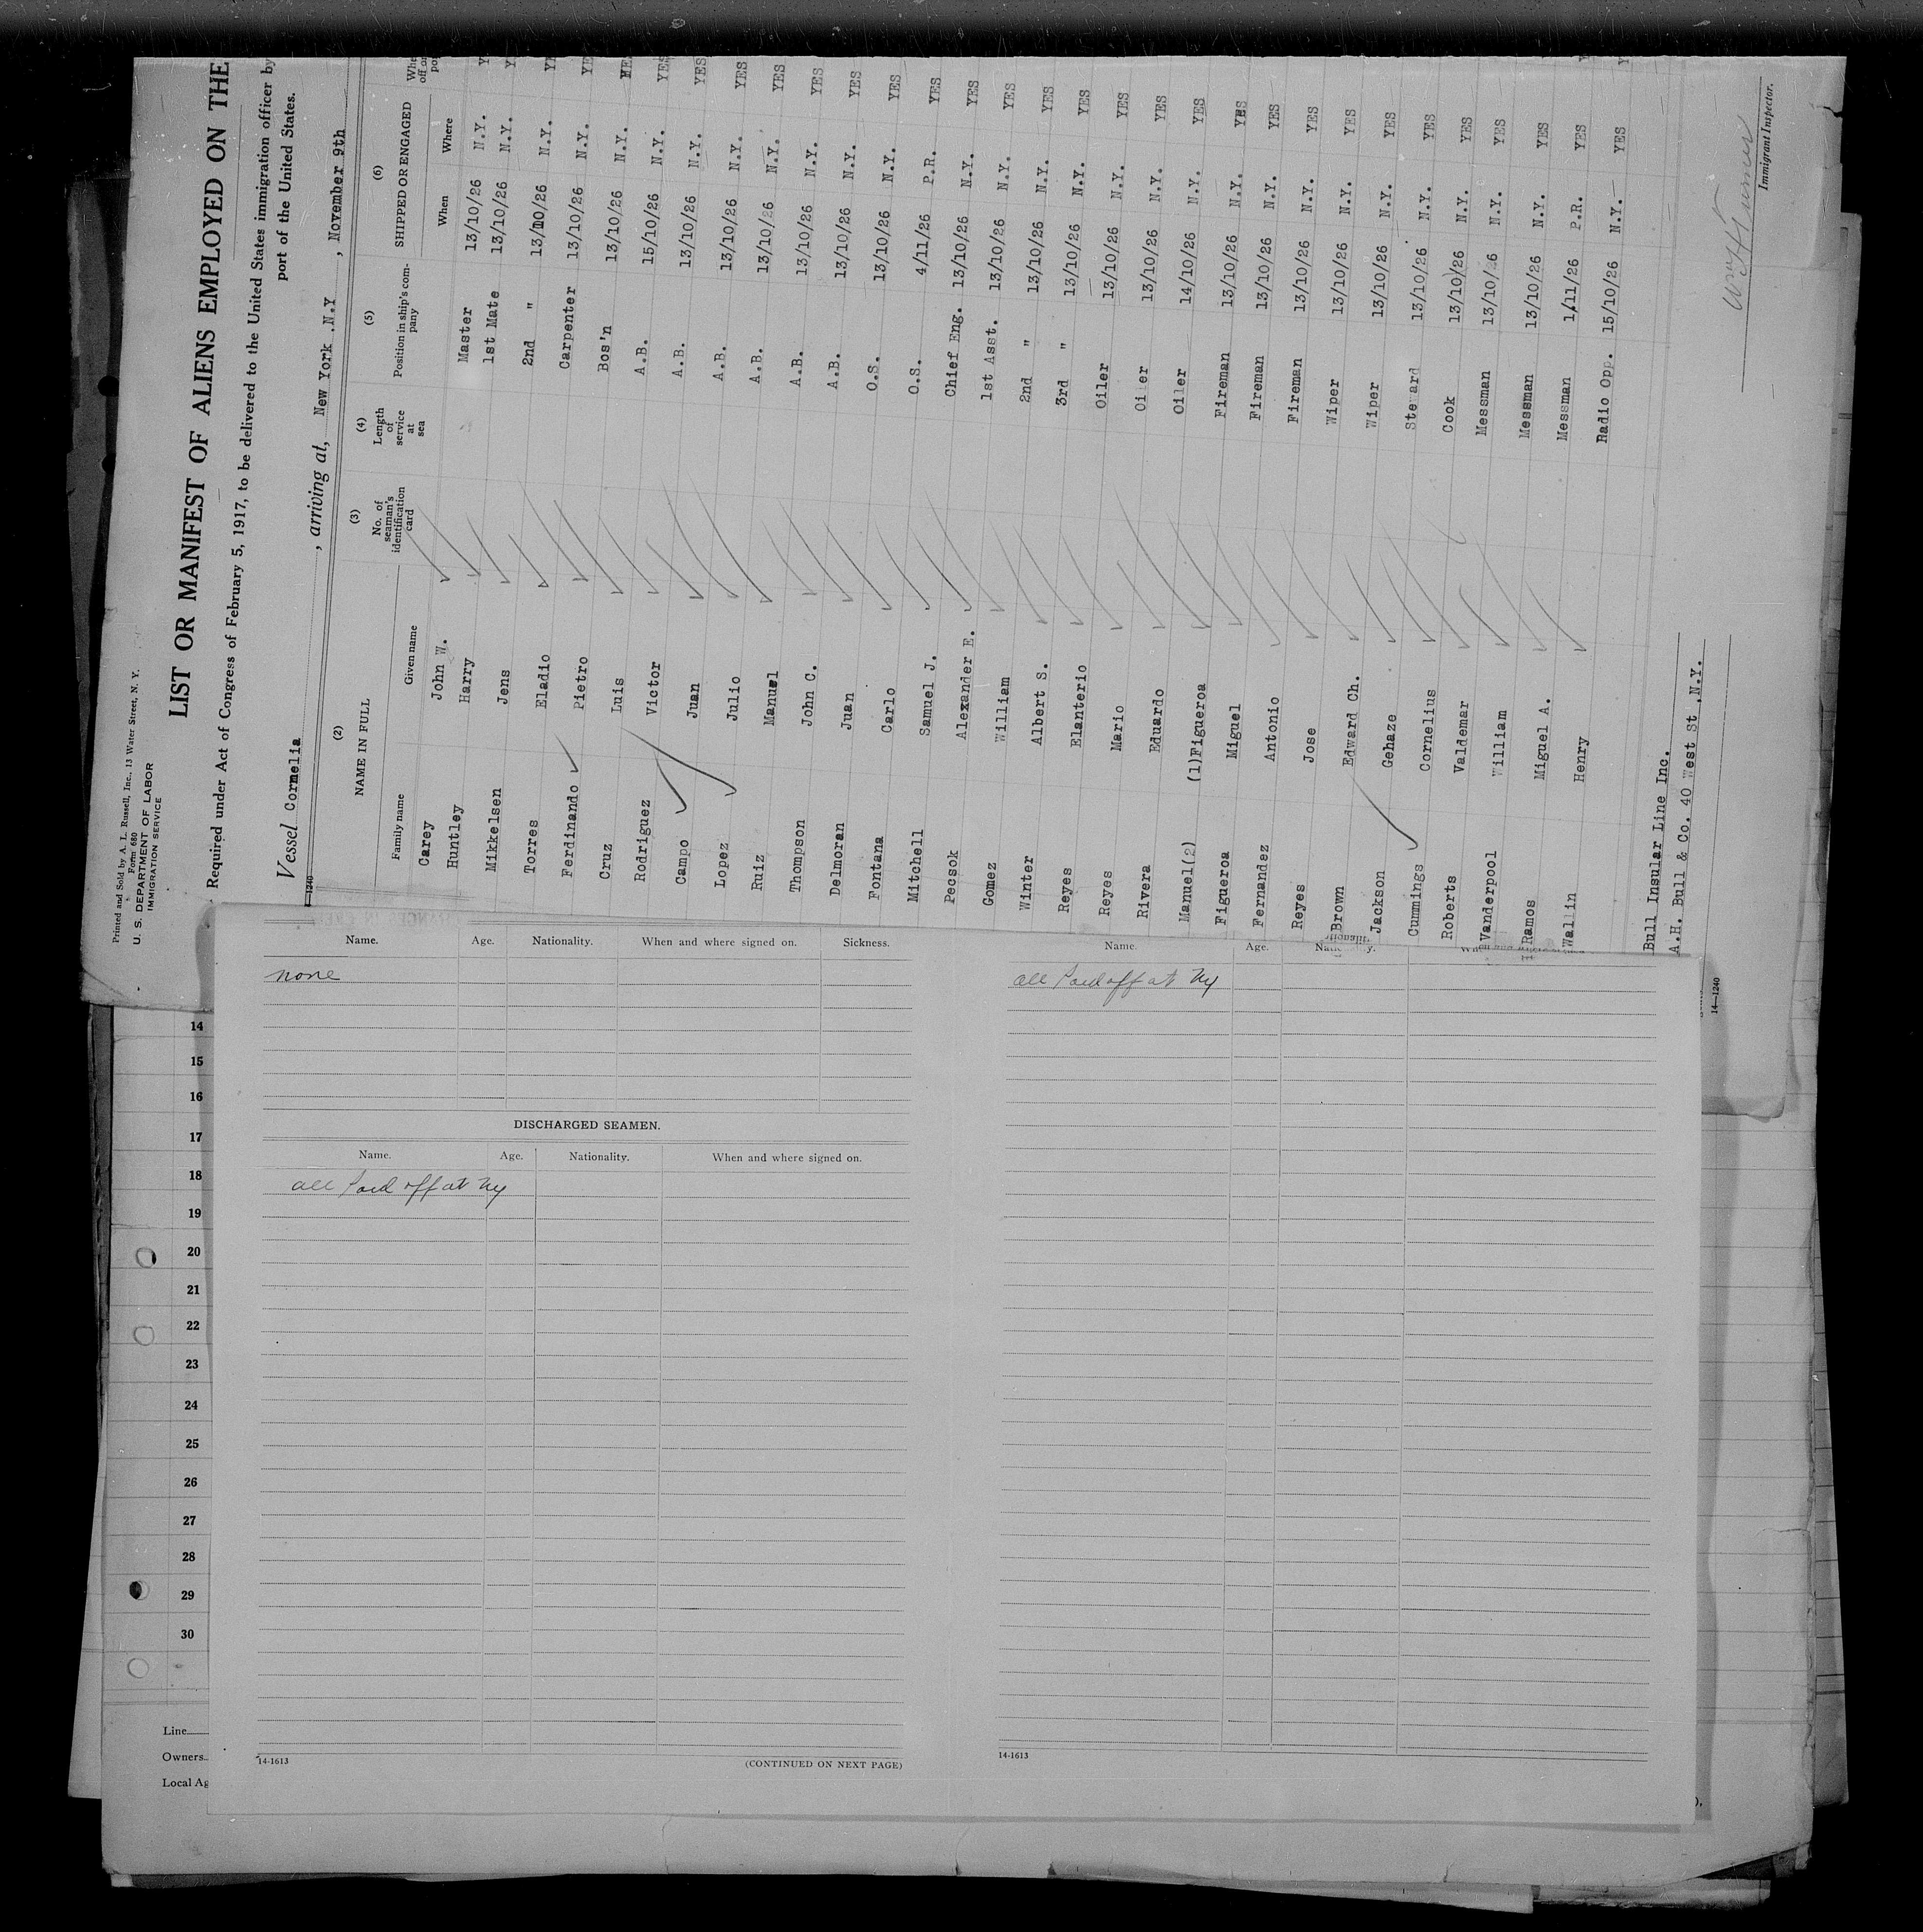 Printed and Sold by A. L. Russell, Inc., 13 Water Street, N. Y.
Form 680
U. S. DEPARTMENT OF LABOR
IMMIGRATION SERVICE
LIST OR MANIFEST OF ALIENS EMPLOYED ON THE
Required under Act of Congress of February 5, 1917, to be delivered to the United States immigration officer by
port of the United States.
Vessel Cornelia, arriving at, New York .N.Y, November 9th
1240
(2) (3) (4) (5) (6)
NAME IN FULL No. of seaman's identification card Length of service at sea Position in ship's company SHIPPED OR ENGAGED
Family name Given name When Where
Carey John W. Master 13/10/26 N.Y.
Huntley Harry 1st Mate 13/10/26 N.Y.
Mikkelsen Jens 2nd " 13/10/26 N.Y.
Torres Eladio Carpenter 13/10/26 N.Y.
Ferdinando Pietro Bos'n 13/10/26 N.Y. YES
Cruz Luis A.B. 15/10/26 N.Y. YES
Rodriguez Victor A.B. 13/10/26 N.Y. YES
Campo Juan A.B. 13/10/26 N.Y. YES
Lopez Julio A.B. 13/10/26 N.Y. YES
Ruiz Manuel A.B. 13/10/26 N.Y. YES
Thompson John C. A.B. 13/10/26 N.Y. YES
Delmoran Juan O.S. 13/10/26 N.Y. YES
Fontana Carlo O.S. 4/11/26 P.R. YES
Mitchell Samuel J. Chief Eng. 13/10/26 N.Y. YES
Pecsok Alexander E. 1st Asst. 13/10/26 N.Y. YES
Gomez William 2nd " 13/10/26 N.Y. YES
Winter Albert S. 3rd " 13/10/26 N.Y. YES
Reyes Elanterio Oiler 13/10/26 N.Y. YES
Reyes Mario Oiler 13/10/26 N.Y. YES
Rivera Eduardo Oiler 14/10/26 N.Y. YES
Manuel(2) (1)Figueroa Fireman 13/10/26 N.Y. YES
Figueroa Miguel Fireman 13/10/26 N.Y. YES
Fernandez Antonio Fireman 13/10/26 N.Y. YES
Reyes Jose Wiper 13/10/26 N.Y. YES
Brown Edward Ch. Wiper 13/10/26 N.Y. YES
Jackson Gehaze Steward 13/10/26 N.Y. YES
Cummings Cornelius Cook 13/10/26 N.Y. YES
Roberts Valdemar Messman 13/10/26 N.Y. YES
Vanderpool William Messman 13/10/26 N.Y. YES
Ramos Miguel A. Messman 1/11/26 P.R. YES
Wallin Henry Radio Opp. 15/10/26 N.Y. YES
Bull Insular Line Inc.
A.H. Bull & Co. 40 West St .N.Y.
14—1240
Immigrant Inspector.
Name. Age. Nationality. When and where signed on. Sickness.
none
DISCHARGED SEAMEN.
Name. Age. Nationality. When and where signed on.
all Paid off at Ny
14-1613
(CONTINUED ON NEXT PAGE)
Name. Age.
all Paid off at Ny
14-1613
14
15
16
17
18
19
20
21
22
23
24
25
26
27
28
29
30
Line
Owners
Local Ag